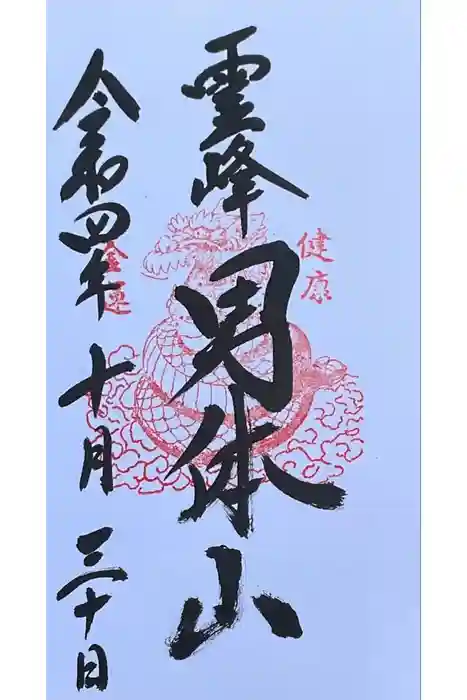 健康
霊峰
男体山
金運
令和四年
十月
三十日